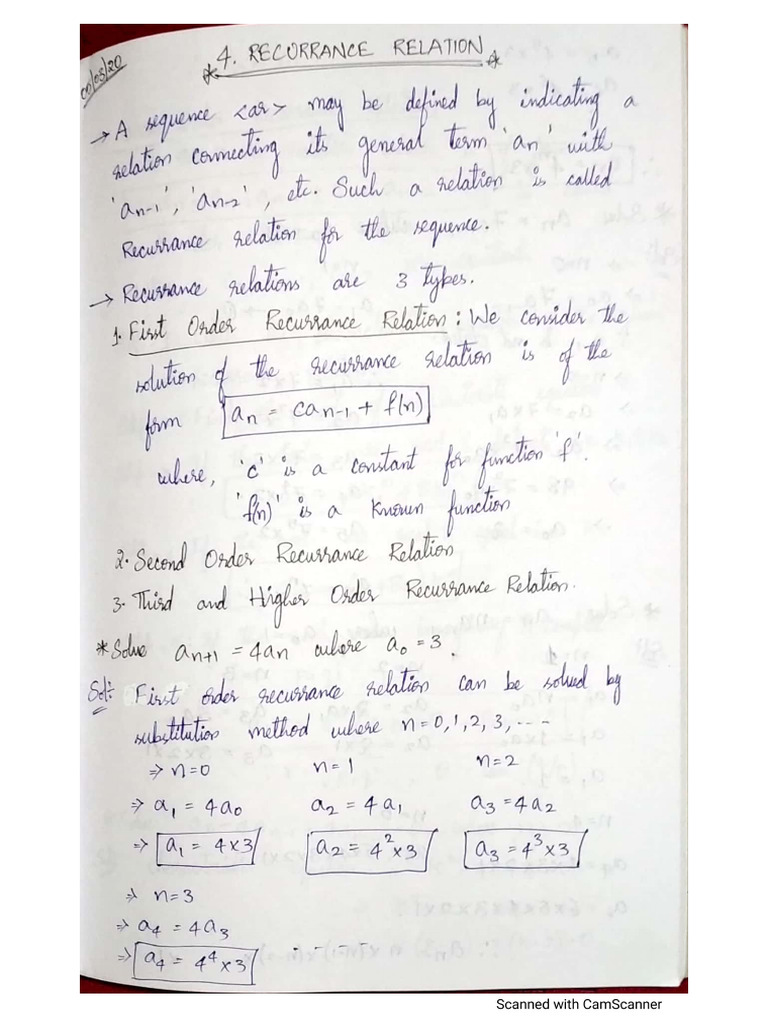 4. RECURRANCE RELATION
→ A sequence <ar> may be defined by indicating a
relation connecting its general term 'an' with
'an-1', 'an-2', etc. Such a relation is called
Recurrance relation for the sequence.
→ Recurrance relations are 3 types.
1. First Order Recurrance Relation: We consider the
solution of the recurrance relation is of the
form an = can-1 + f(n)
where, 'c' is a constant for function 'f'.
'f(n)' is a known function
2. Second Order Recurrance Relation
3. Third and Higher Order Recurrance Relation.
* Solve an+1 = 4an where a0 = 3.
Sol:- First order recurrance relation can be solved by
substitution method where n=0,1,2,3,----
⇒ n=0 n=1 n=2
⇒ a1 = 4a0 a2 = 4a1 a3 = 4a2
⇒ a1 = 4x3 a2 = 4²x3 a3 = 4³x3
⇒ n=3
⇒ a4 = 4a3
⇒ a4 = 4⁴x3 - - - -
Scanned with CamScanner